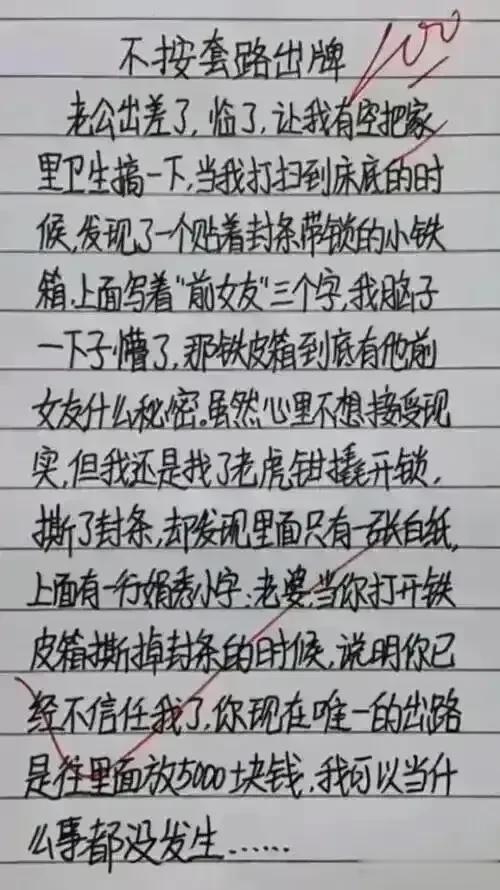 不按套路出牌
100
老公出差了,临了,让我有空把家
里卫生搞一下,当我打扫到床底的时
候,发现了一个贴着封条带锁的小铁
箱.上面写着"前女友"三个字,我脑子
一下子懵了,那铁皮箱到底有他前
女友什么秘密。虽然心里不想接受现
实,但我还是找了老虎钳撬开锁,
撕了封条,却发现里面只有一张白纸,
上面有一行娟秀小字:老婆.当你打开铁
皮箱撕掉封条的时候,说明你已
经不信任我了,你现在唯一的出路
是往里面放5000块钱,我可以当什
么事都没发生......